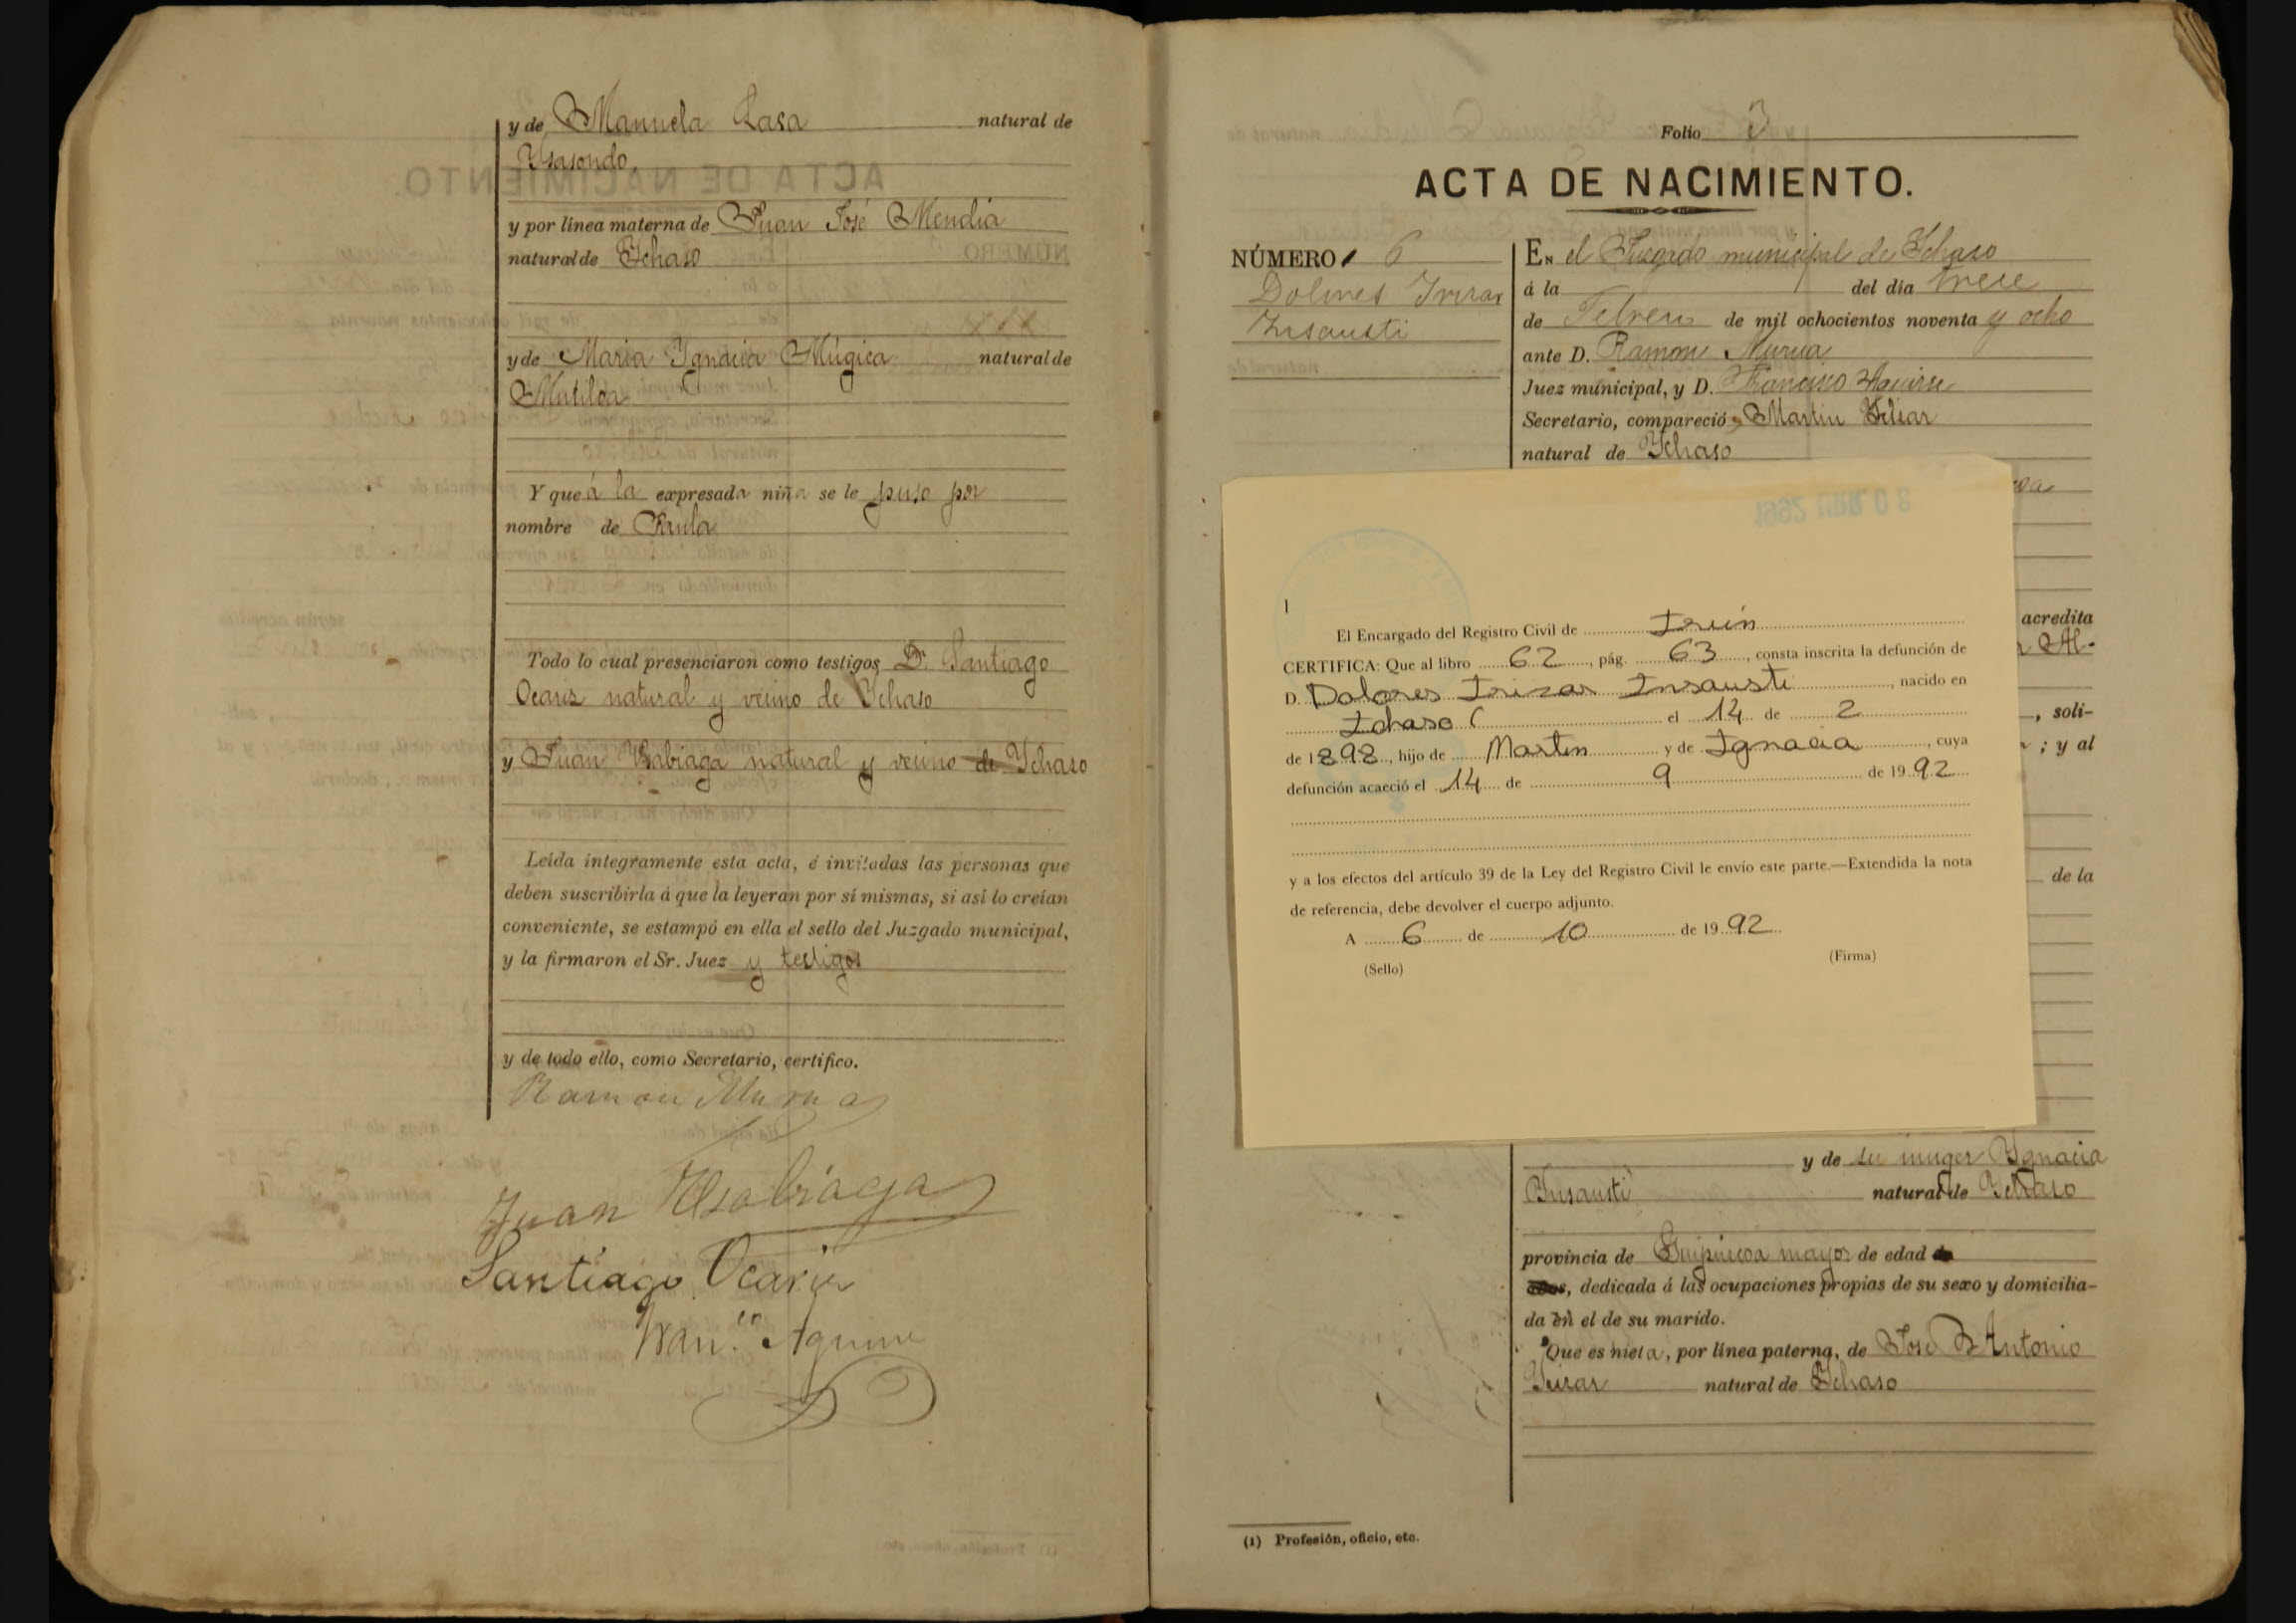 y de Manuela Lasa natural de
Ysasondo,
y por línea materna de Juan José Mendia
natural de Ychaso
y de Maria Ygnacia Múgica natural de
Mutiloa
Y que á la expresada niña se le puso por
nombre de Paula
Todo lo cual presenciaron como testigos D. Santiago
Ocariz natural y vecino de Ychaso
y Juan Usabiaga natural y vecino de Ychaso
Leída íntegramente esta acta, é invitadas las personas que
deben suscribirla á que la leyeran por sí mismas, si así lo creían
conveniente, se estampó en ella el sello del Juzgado municipal,
y la firmaron el Sr. Juez y testigos
y de todo ello, como Secretario, certifico.
Ramon Murua
Juan Usabiaga
Santiago Ocariz
Fran.co Aguirre
Folio 3
ACTA DE NACIMIENTO.
NÚMERO 6
Dolores Irizar
Insausti
EN el Juzgado municipal de Ychaso
á la del día trece
de Febrero de mil ochocientos noventa y ocho
ante D. Ramon Murua
Juez municipal, y D. Francisco Aguirre
Secretario, compareció Martin Yrizar
natural de Ychaso
acredita
, soli-
; y al
de la
1992 URR 0 8
1
El Encargado del Registro Civil de Irún
CERTIFICA: Que al libro 62, pág. 63, consta inscrita la defunción de
D. Dolores Irizar Insausti, nacido en
Ichaso el 14 de 2
de 1898, hijo de Martin y de Ignacia, cuya
defunción acaeció el 14 de 9 de 1992
y a los efectos del artículo 39 de la Ley del Registro Civil le envío este parte.—Extendida la nota
de referencia, debe devolver el cuerpo adjunto.
A 6 de 10 de 1992
(Sello) (Firma)
y de su muger Ygnacia
Ynsausti natural de Ychaso
provincia de Guipúzcoa mayor de edad
, dedicada á las ocupaciones propias de su sexo y domicilia-
da en el de su marido.
Que es nieta, por línea paterna, de José Antonio
Yrizar natural de Ychaso
(1) Profesión, oficio, etc.